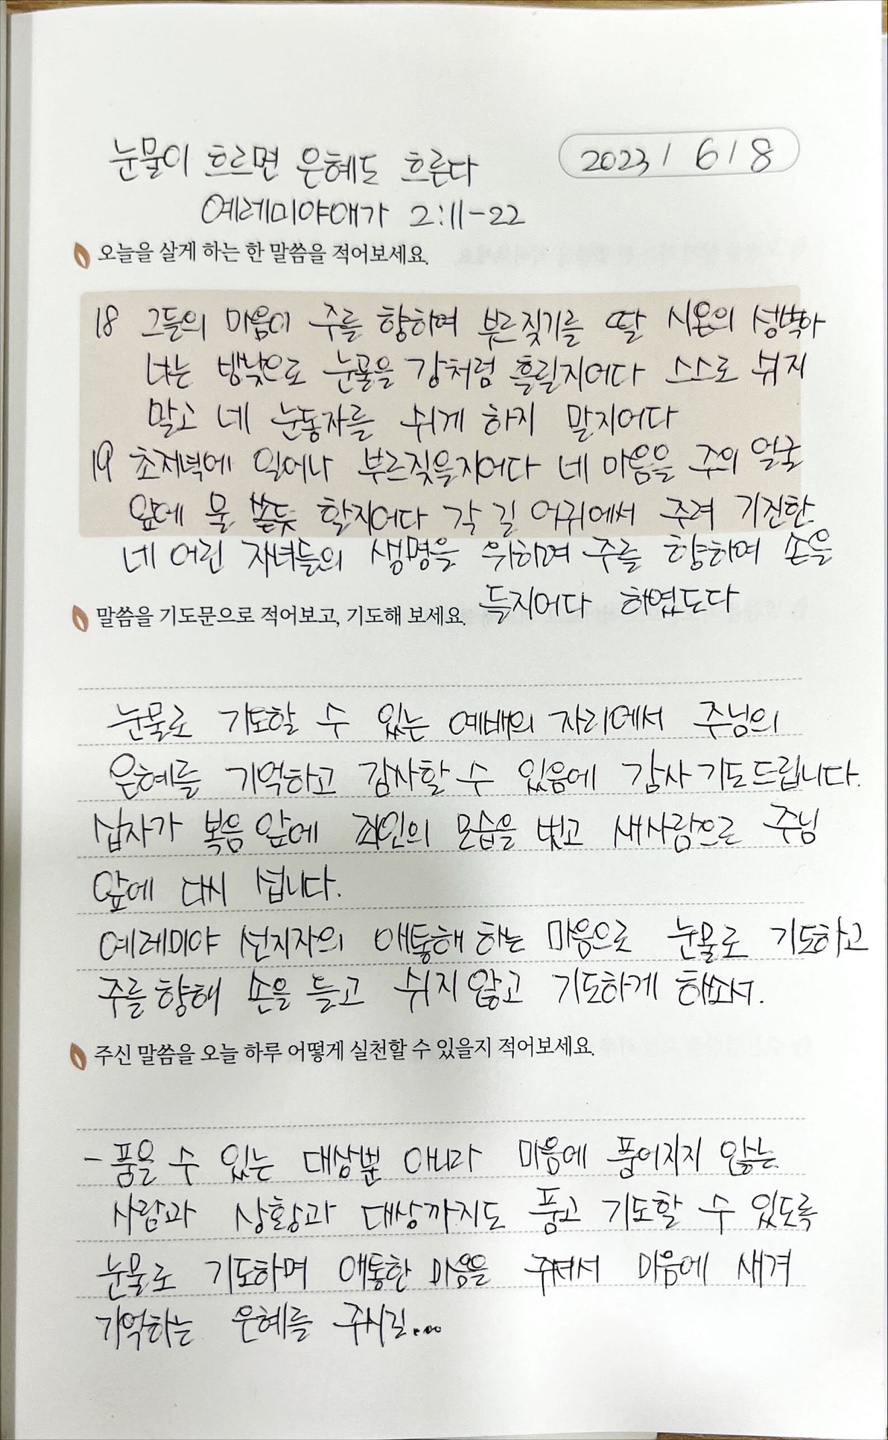 눈물이 흐르면 은혜도 흐른다
2023 / 6 / 8
예레미야애가 2:11-22
오늘을 살게 하는 한 말씀을 적어보세요.
18 그들의 마음이 주를 향하여 부르짖기를 딸 시온의 성벽아
너는 밤낮으로 눈물을 강처럼 흘릴지어다 스스로 쉬지
말고 네 눈동자를 쉬게 하지 말지어다
19 초저녁에 일어나 부르짖을지어다 네 마음을 주의 얼굴
앞에 물 쏟듯 할지어다 각 길 어귀에서 주려 기진한
네 어린 자녀들의 생명을 위하여 주를 향하여 손을
들지어다 하였도다
말씀을 기도문으로 적어보고, 기도해 보세요.
눈물로 기도할 수 있는 예배의 자리에서 주님의
은혜를 기억하고 감사할 수 있음에 감사 기도드립니다.
십자가 복음 앞에 죄인의 모습을 벗고 새사람으로 주님
앞에 다시 섭니다.
예레미야 선지자의 애통해 하는 마음으로 눈물로 기도하고
주를 향해 손을 들고 쉬지 않고 기도하게 하소서.
주신 말씀을 오늘 하루 어떻게 실천할 수 있을지 적어보세요.
- 품을 수 있는 대상뿐 아니라 마음에 품어지지 않는
사람과 상황과 대상까지도 품고 기도할 수 있도록
눈물로 기도하며 애통한 마음을 주셔서 마음에 새겨
기억하는 은혜를 주시길...